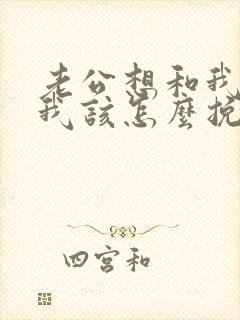 老公想和我
我該怎麼挽
四宮和